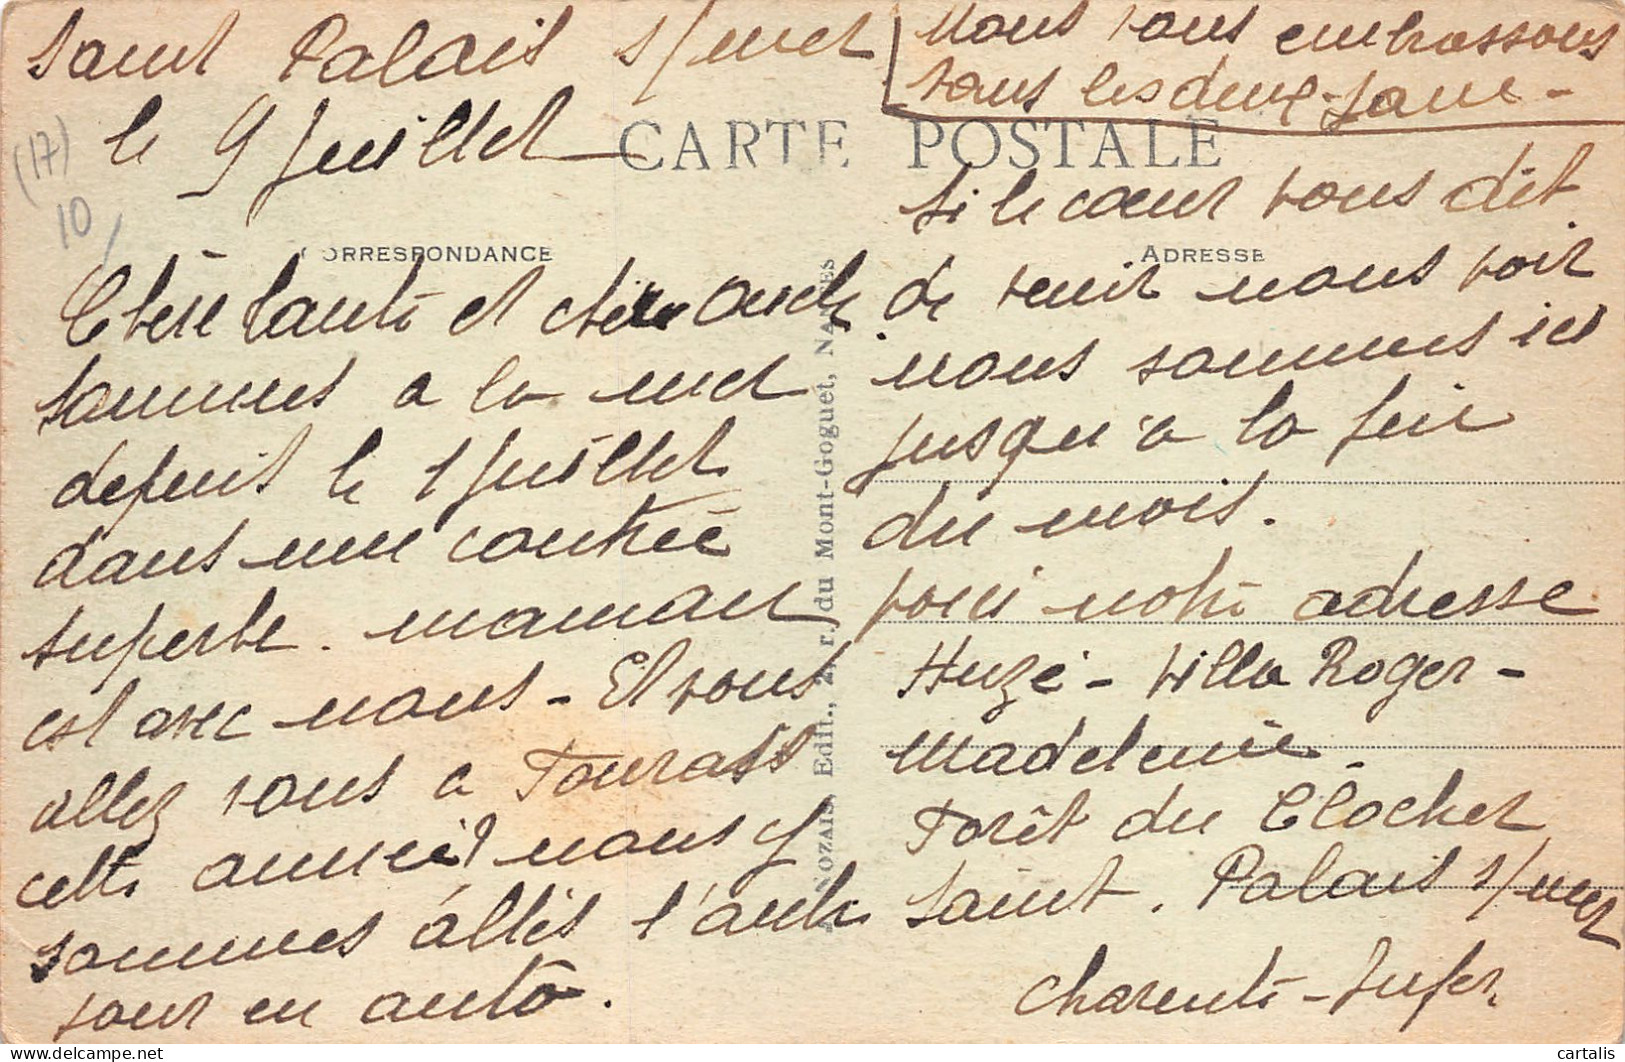 Saint Palais s/mer
le 9 Juillet
CARTE POSTALE
(17)
10
CORRESPONDANCE
Chère tante et cher oncle
sommes a la mer
depuis le 1 juillet
dans une contrée
superbe. maman
est avec nous - Et vous
allez vous a Tourass
cette année? nous y
sommes allés l'autre
jour en auto.
NOZAIS, Edit., r. du Mont-Goguet, NANTES
Nous vous embrassons
tous les deux -
ADRESSE
Si le cœur vous dit
de venir nous voir
nous sommes ici
jusqu'à la fin
du mois.
voici notre adresse
Huzé - Villa Roger-
Madeleine.
Forêt du Clocher
Saint. Palais s/mer
Charente-Infer.
cartalis